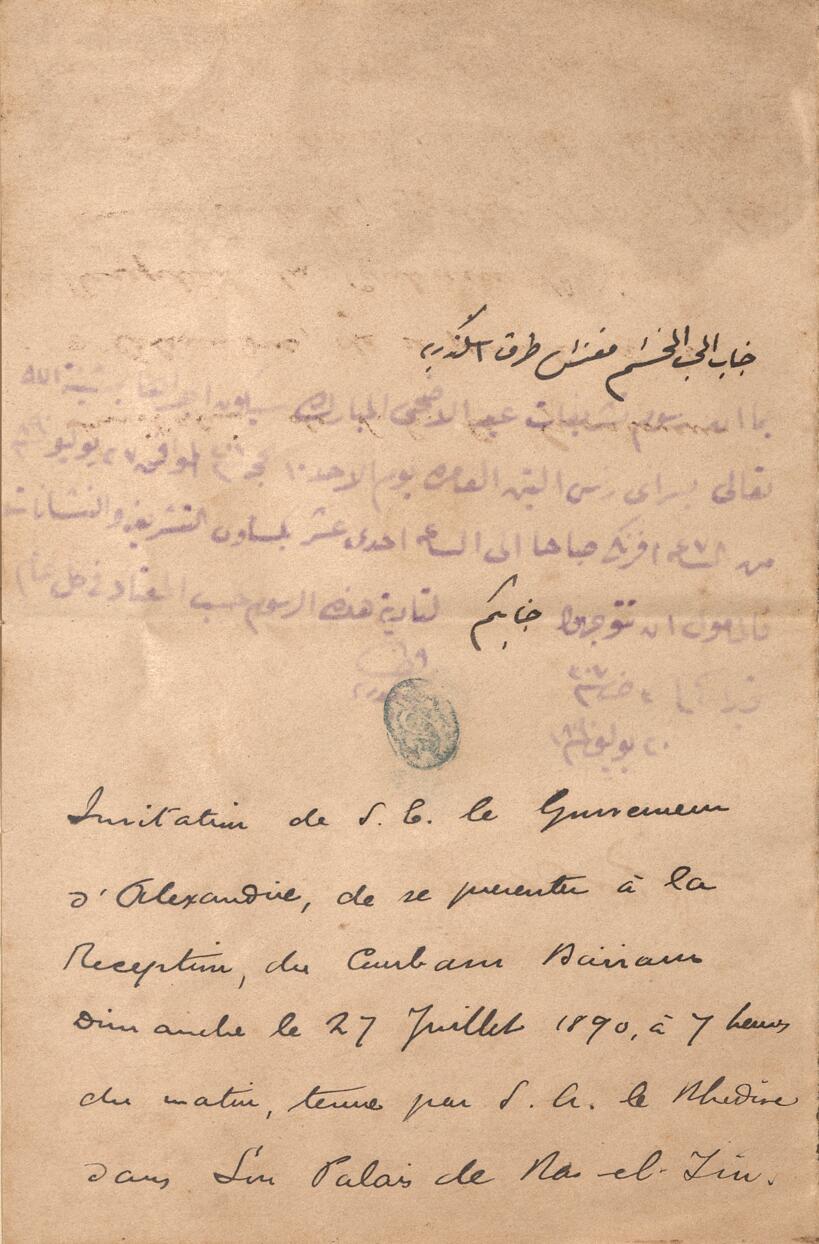 جناب المحب المحترم مفتش طرق اسكندريه
بما ان رسوم تشريفات عيد الاضحى المبارك سيكون اجراها بمشيئة الله
تعالى بسراى رأس التين العامره يوم الاحد ١٠ الموافق ٢٧ يوليو
من الساعه ٧ افرنكى صباحا الى الساعه احدى عشر بلمساوى التشريفه والنشانات
فالمأمول ان تتوجهوا جنابكم لتادية هذه الرسوم حسب المعتاد فى كل عام
٢٠ يوليو
Invitation de S. E. le Gouverneur
d'Alexandrie, de se presenter à la
Reception, du Courbam Baïram
Dimanche le 27 Juillet 1890, à 7 heures
du matin, tenue par S. A. le Khedive
dans Son Palais de Ras-el-Tin.